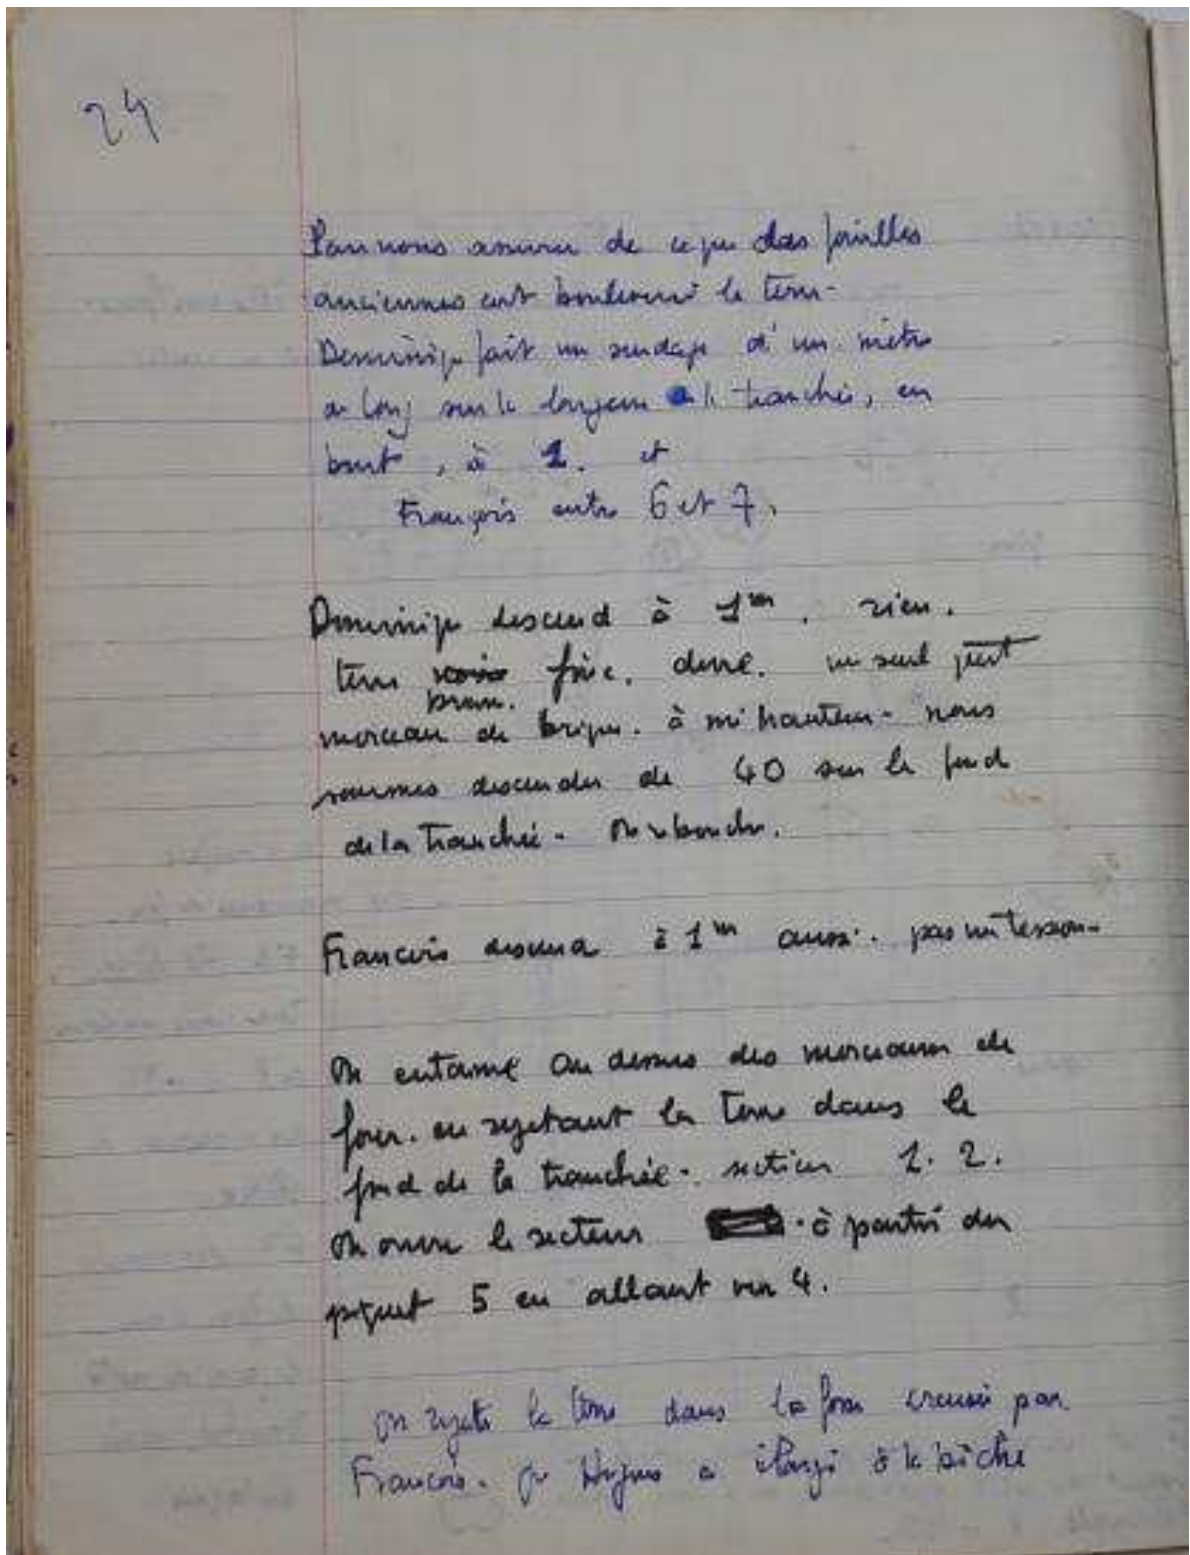 24
Pour nous assurer de ce que des fouilles
anciennes ont bouleversé la terre.
Dominique fait un sondage d'un mètre
de long sur la largeur de la tranchée, en
bout, à 1. et
François entre 6 et 7.
Dominique descend à 1m. rien.
terre noire fine. dure. un seul petit
brune.
morceau de brique. à mi hauteur. nous
sommes descendus de 40 sur le fond
de la tranchée. On rebouche.
François descend à 1m aussi. pas un tesson.
On entame au dessus des morceaux de
four. en rejetant la terre dans le
fond de la tranchée. section 1. 2.
On ouvre le secteur . à partir du
piquet 5 en allant vers 4.
On rejette la terre dans la fosse creusée par
François. que Hugues a élargi à la bêche